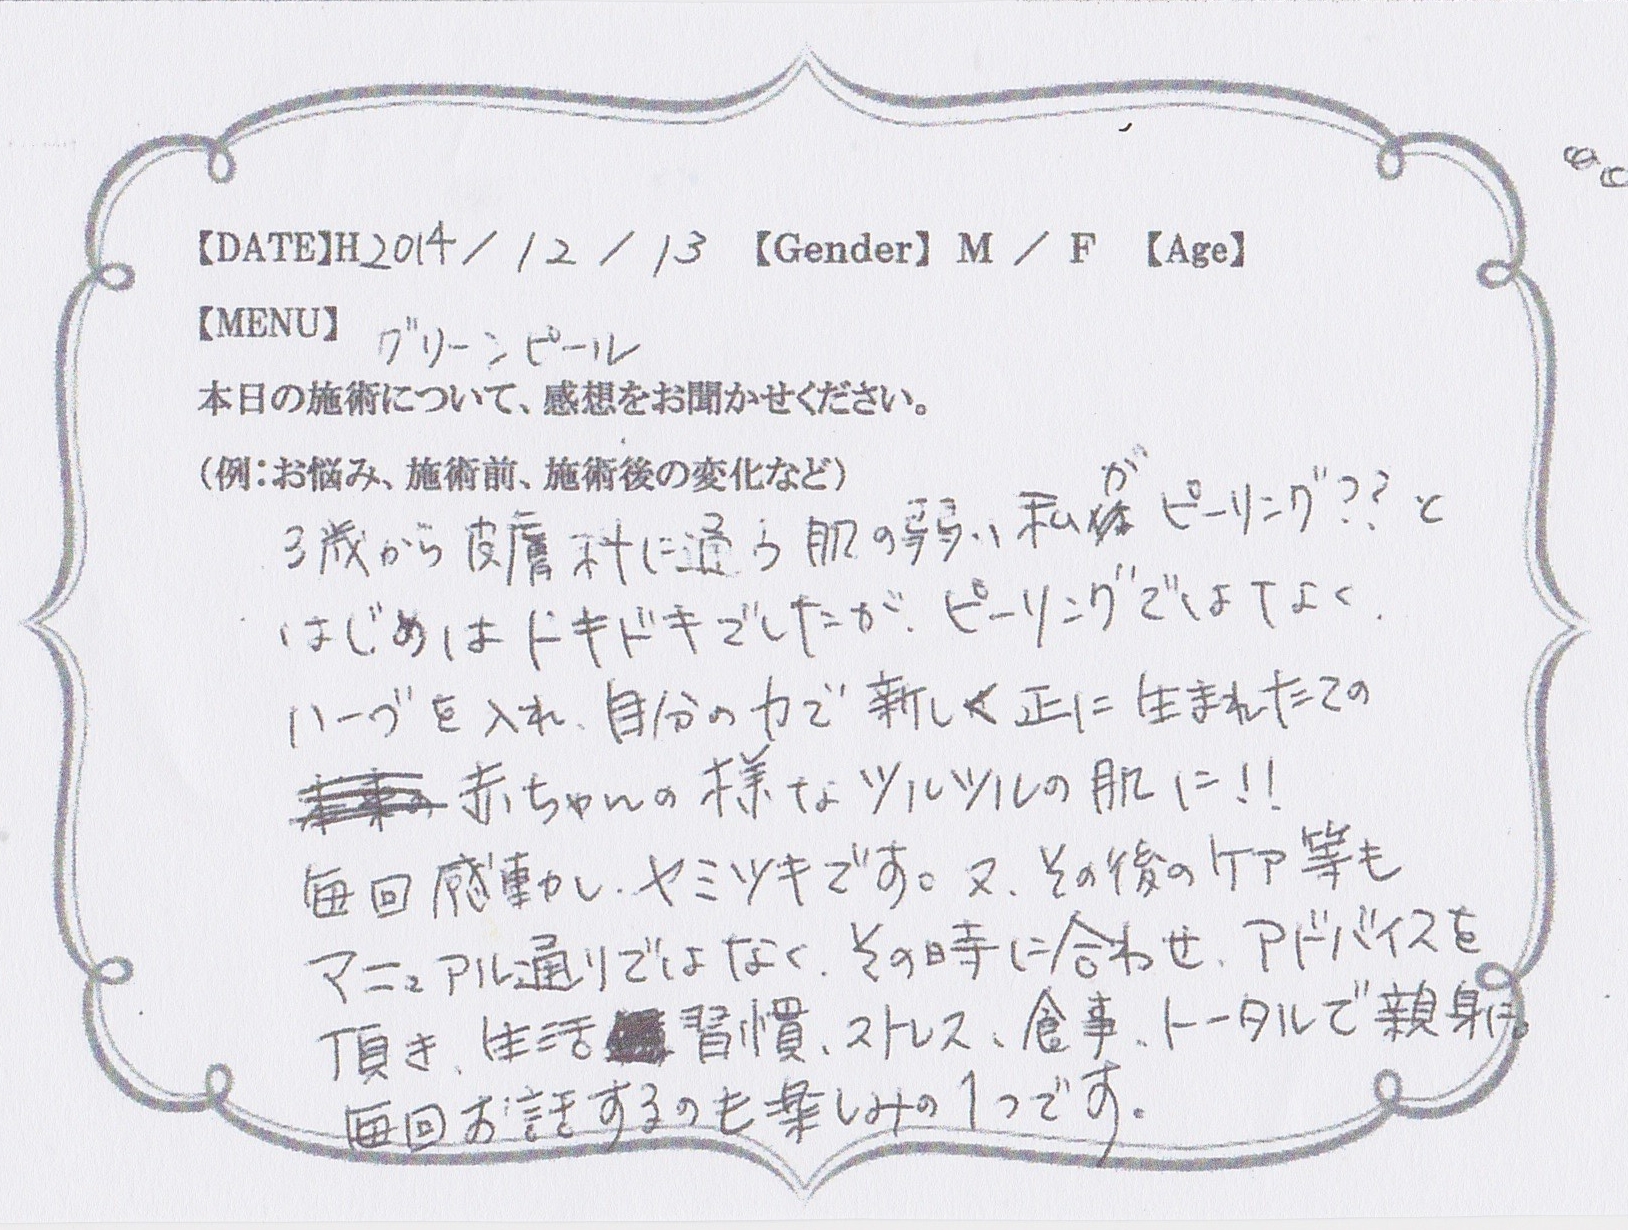 【DATE】H2014/12/13 【Gender】 M / F 【Age】
【MENU】
グリーンピール
本日の施術について、感想をお聞かせください。
(例:お悩み、施術前、施術後の変化など)
3歳から皮膚科に通う肌の弱い私がピーリング??と
はじめはドキドキでしたが、ピーリングではなく、
ハーブを入れ、自分の力で新しく正に生まれたての
赤ちゃんの様なツルツルの肌に!!
毎回感動し、ヤミツキです。又、その後のケア等も
マニュアル通りではなく、その時に合わせ、アドバイスを
頂き、生活習慣、ストレス、食事、トータルで親身に。
毎回お話するのも楽しみの1つです。